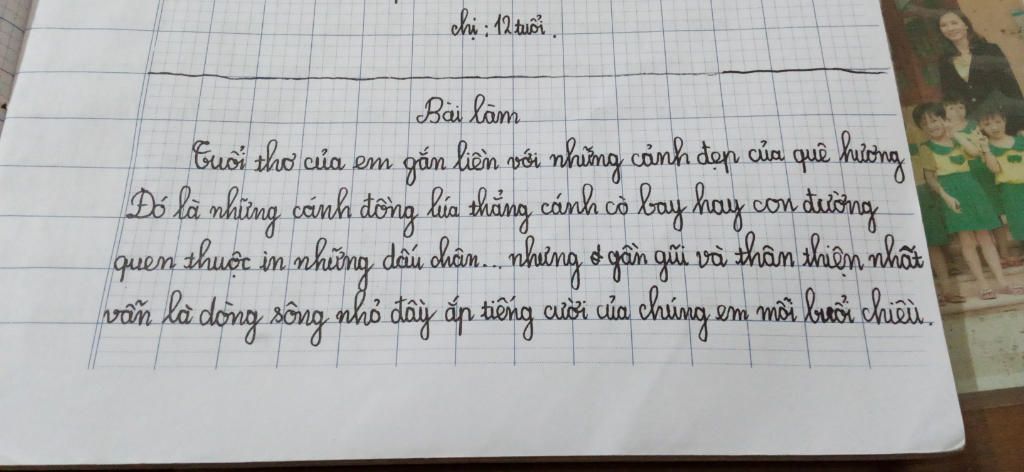 chị : 12 tuổi.
Bài làm
Tuổi thơ của em gắn liền với những cảnh đẹp của quê hương
Đó là những cánh đồng lúa thẳng cánh cò bay hay con đường
quen thuộc in những dấu chân... nhưng gần gũi và thân thiện nhất
vẫn là dòng sông nhỏ đầy ắp tiếng cười của chúng em mỗi buổi chiều.